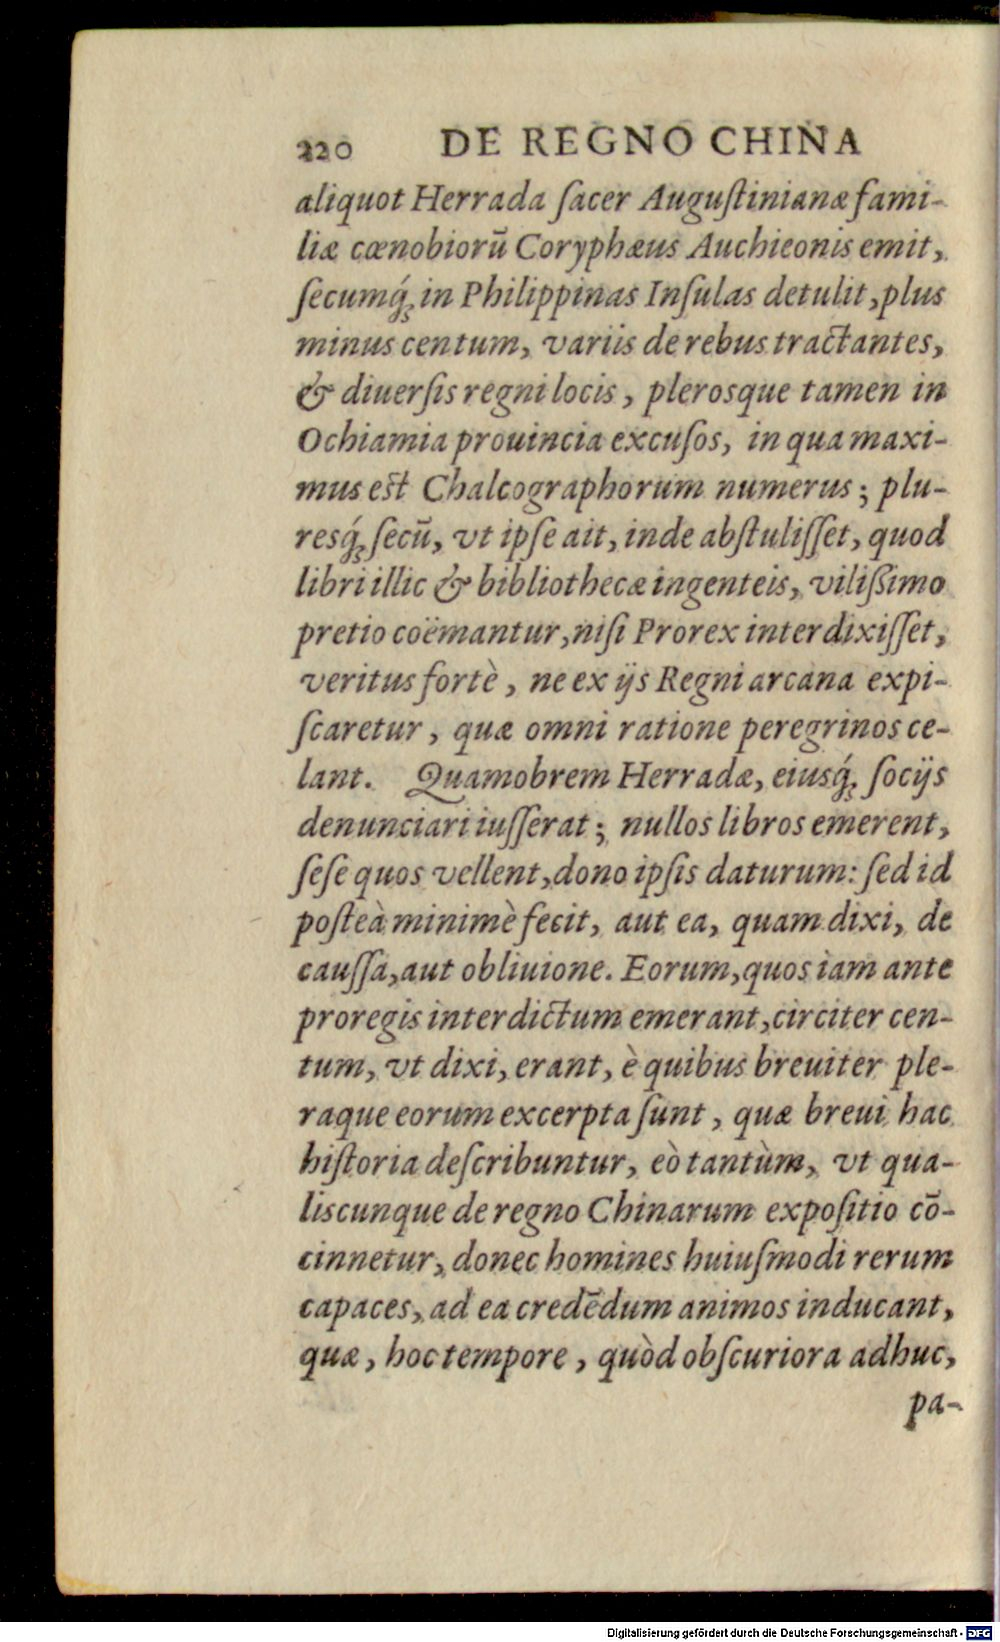 220 DE REGNO CHINA
aliquot Herrada ſacer Auguſtinianæ fami-
liæ cœnobiorū Coryphæus Auchieonis emit,
ſecumq́ꝫ in Philippinas Inſulas detulit, plus
minus centum, variis de rebus tractantes,
& diuerſis regni locis, plerosque tamen in
Ochiamia prouincia excuſos, in qua maxi-
mus est Chalcographorum numerus; plu-
resq́ꝫ ſecū, vt ipſe ait, inde abſtuliſſet, quod
libri illic & bibliothecæ ingenteis, viliſsimo
pretio coëmantur, niſi Prorex interdixiſſet,
veritus fortè, ne ex ijs Regni arcana expi-
ſcaretur, quæ omni ratione peregrinos ce-
lant. Quamobrem Herradæ, eiusq́ꝫ ſocijs
denunciari iuſſerat; nullos libros emerent,
ſeſe quos vellent, dono ipſis daturum: ſed id
poſteà minimè fecit, aut ea, quam dixi, de
cauſſa, aut obliuione. Eorum, quos iam ante
proregis interdictum emerant, circiter cen-
tum, vt dixi, erant, è quibus breuiter ple-
raque eorum excerpta ſunt, quæ breui hac
hiſtoria deſcribuntur, eò tantùm, vt qua-
liscunque de regno Chinarum expoſitio cō-
cinnetur, donec homines huiuſmodi rerum
capaces, ad ea credēdum animos inducant,
quæ, hoc tempore, quòd obſcuriora adhuc,
pa-
Digitalisierung gefördert durch die Deutsche Forschungsgemeinschaft - DFG